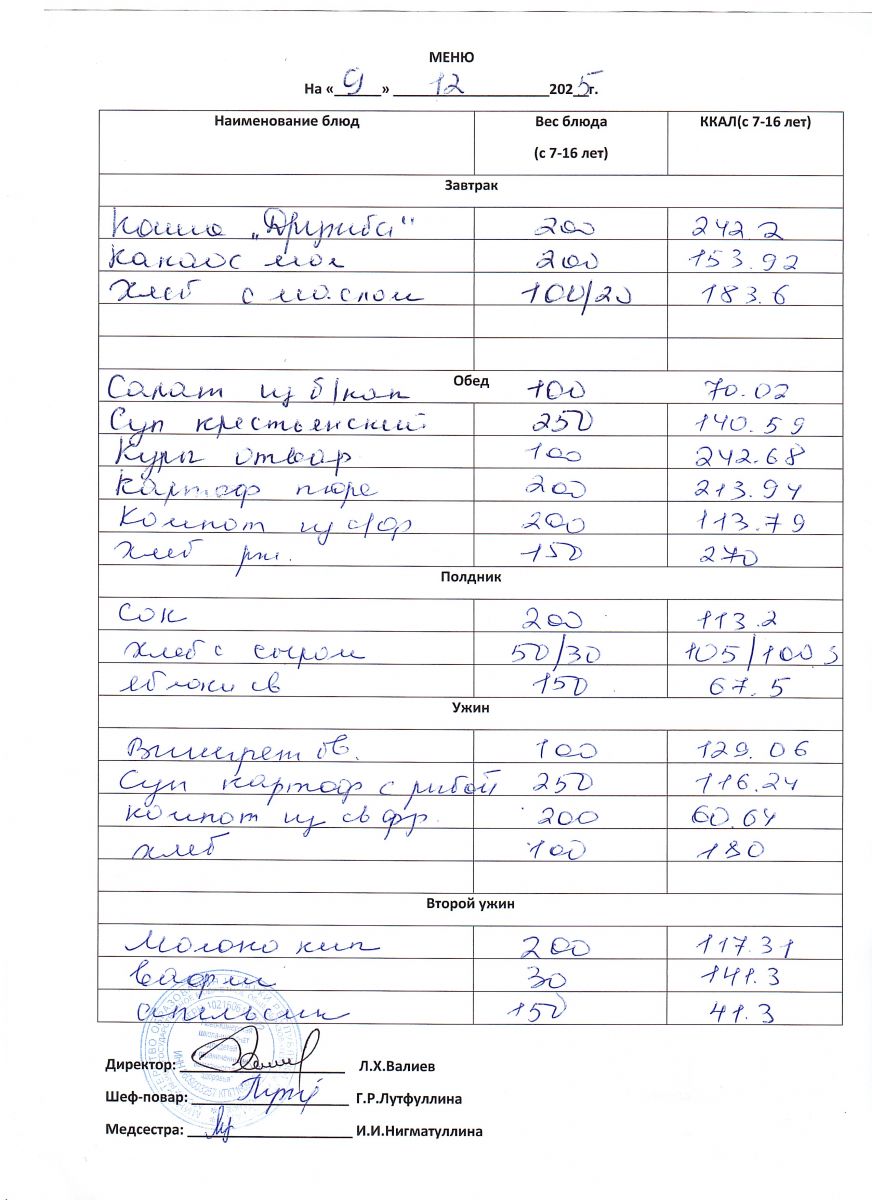 МЕНЮ
На « 9 » 12 2025 г.
Наименование блюд Вес блюда (с 7-16 лет) ККАЛ(с 7-16 лет)
Завтрак
Каша „Дружба" 200 242.2
Какао с мол 200 153.92
Хлеб с маслом 100/20 183.6
Обед
Салат из б/кап 100 70.02
Суп крестьянский 250 140.59
Куры отвар 100 242.68
Картоф пюре 200 213.94
Компот из с/фр 200 113.79
Хлеб рж. 150 270
Полдник
Сок 200 113.2
Хлеб с сыром 50/30 105/100 3
яблоки св 150 67.5
Ужин
Винигрет ов. 100 129.06
Суп картоф с рибой 250 116.24
компот из св фр. 200 60.64
хлеб 100 180
Второй ужин
Молоко кип 200 117.31
Вафли 30 141.3
апельсин 150 41.3
Директор: Л.Х.Валиев
Шеф-повар: Г.Р.Лутфуллина
Медсестра: И.И.Нигматуллина